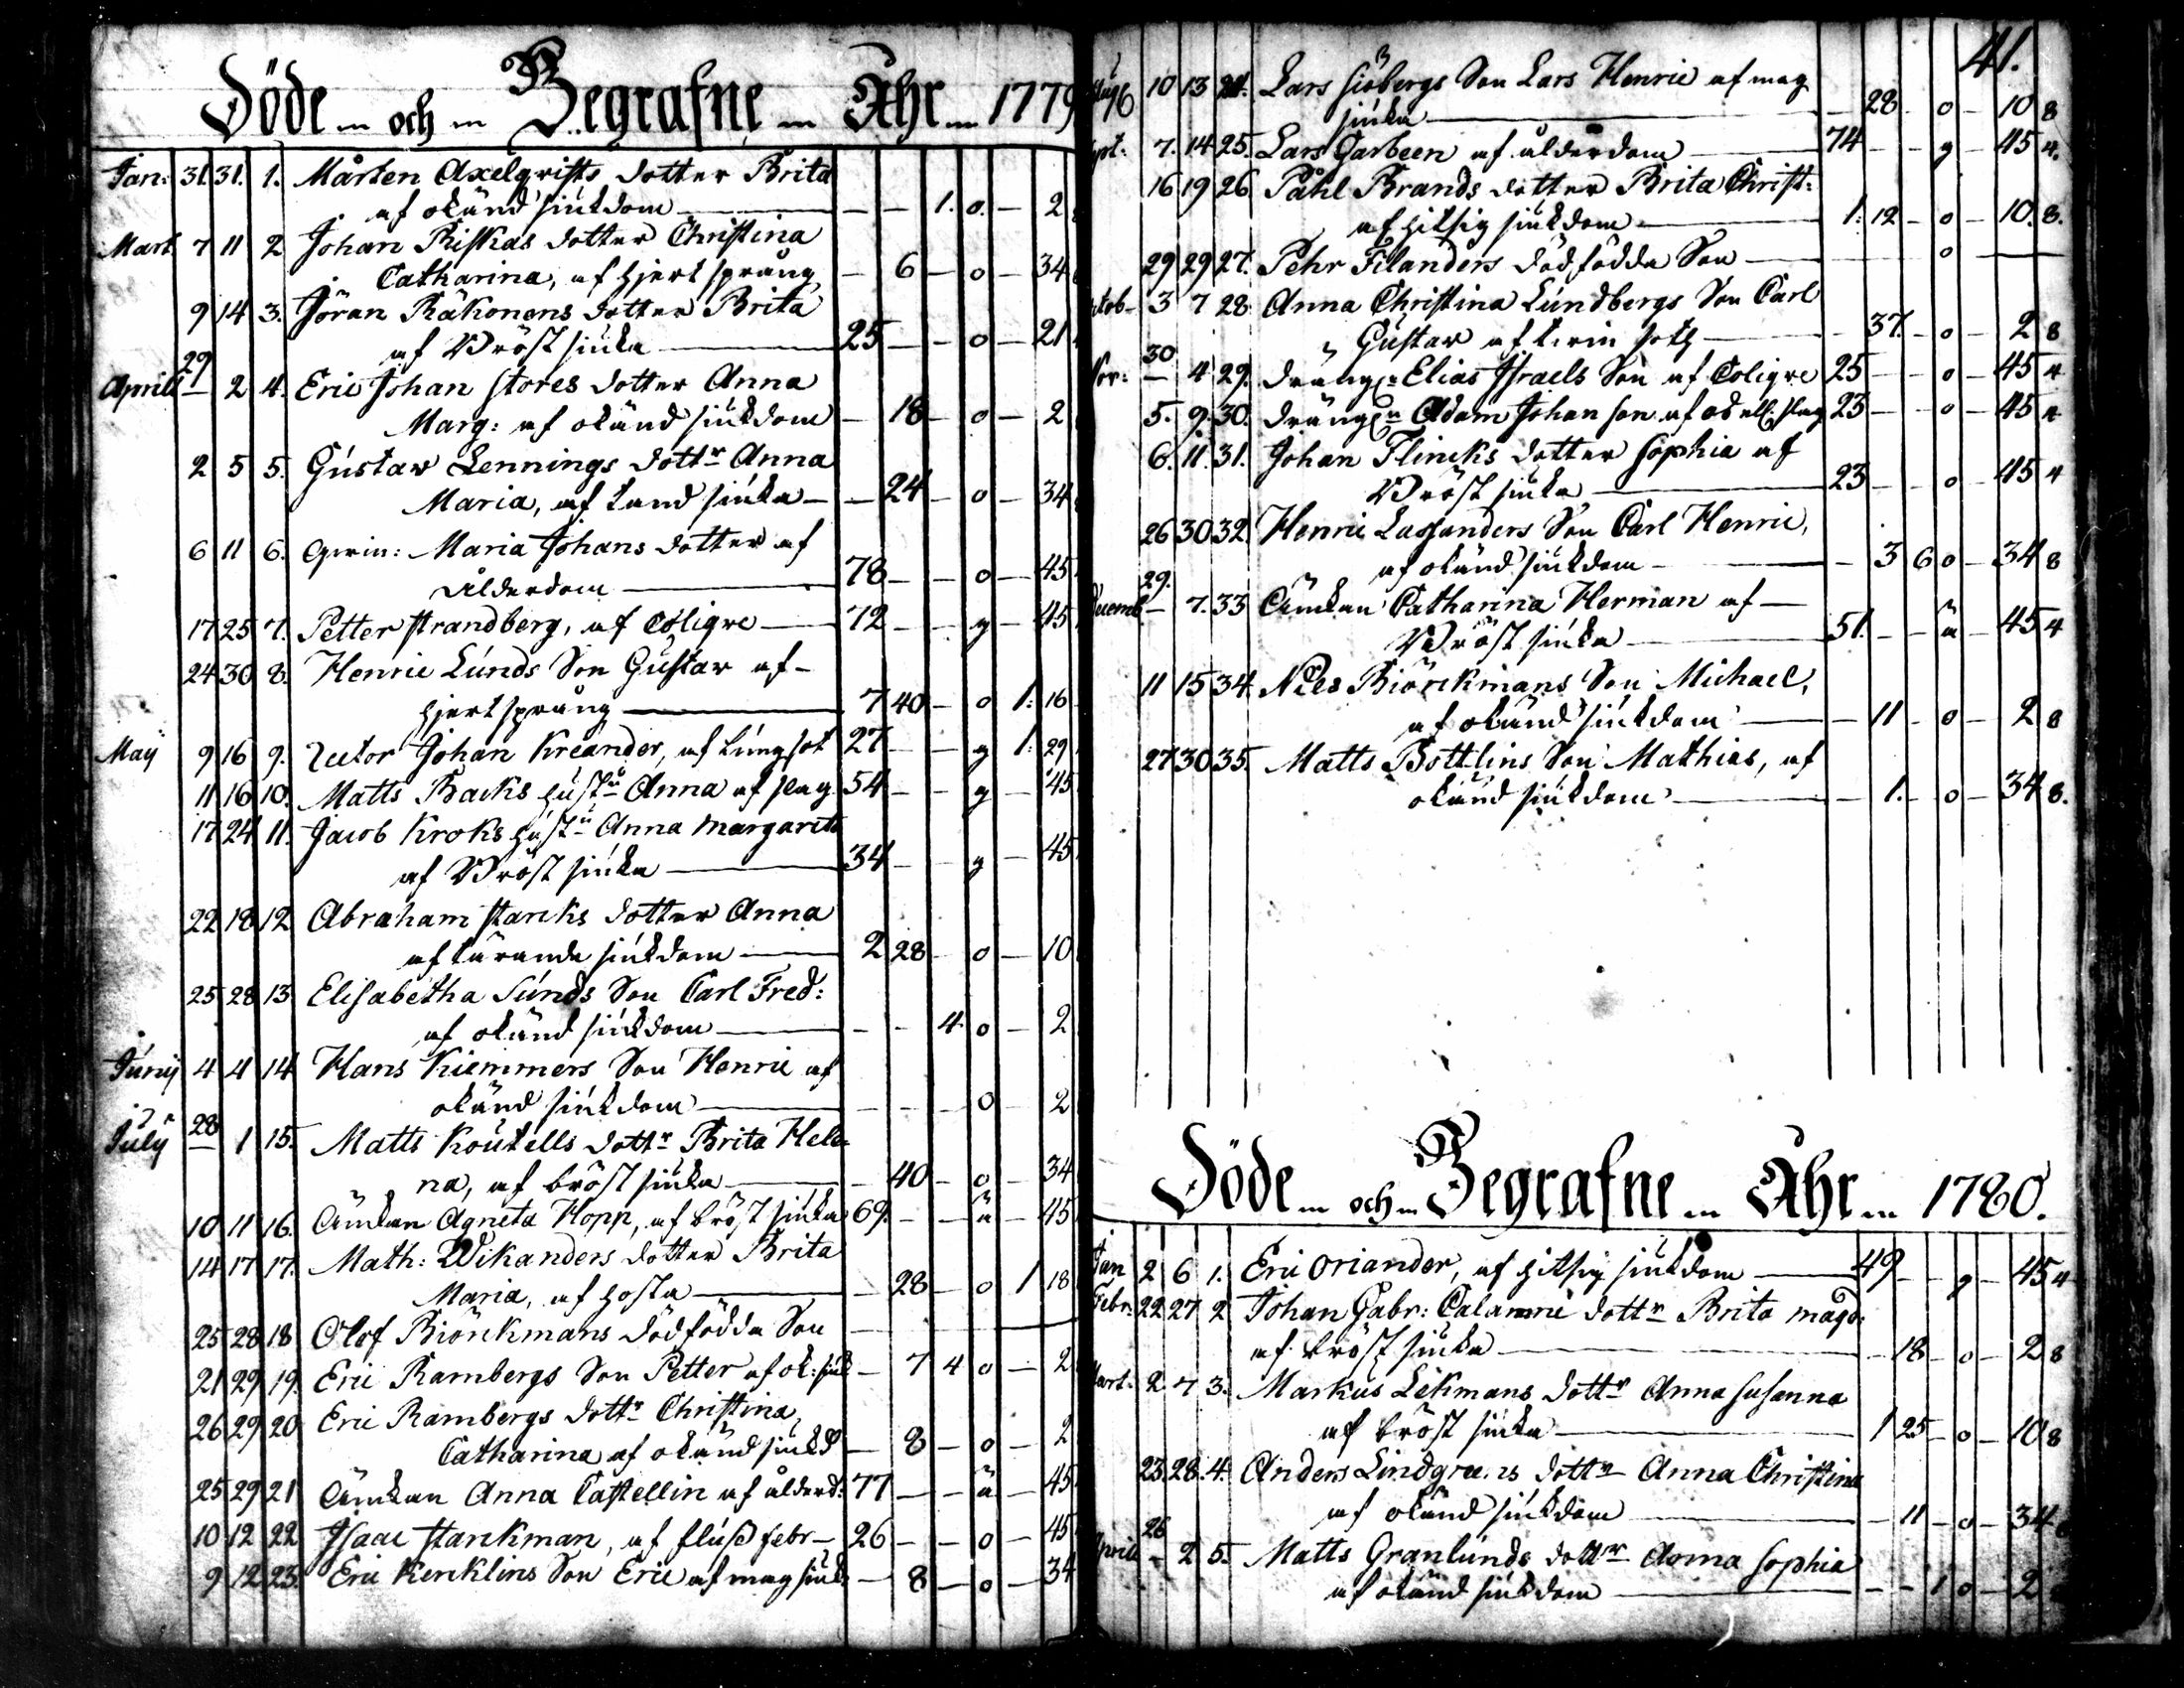 Döde och Begrafne Åhr 1779
Jan: 31. 31. 1. Mårten Axelqvists dotter Brita
af okänd siukdom — — 1. o. — 2
Mart. 7 11 2 Johan Riskas dotter Christina
Catharina, af hjertsprång — 6 — o — 34
9 14 3. Jöran Räkonens dotter Brita
af Bröst siuka 25 — — o — 21
29
Aprill — 2 4. Eric Johan Stores dotter Anna
Marg: af okänd siukdom — 18 — o — 2
2 5 5. Gustav Lennings dottr Anna
Maria, af tand siuka — — 24 — o — 34
6 11 6. Maria Johans dotter af
ålderdom 78 — — o — 45
17 25 7. Petter Strandberg, af Colique 72 — — g — 45
24 30 8. Henric Lunds Son Gustav af —
hjertsprång 7 40 — o 1: 16
Maij 9 16 9. Rector Johan Kreander, af lungsot 27 — — g 1: 29
11 16 10. Matts Backs hustu Anna af slag 54 — — g — 45
17 24 11. Jacob Kroks hustu Anna Margareta
af Bröst siuka 34 — — g — 45
22 18 12 Abraham Starcks dotter Anna
af tärande siukdom 2 28 — o — 10
25 28 13 Elisabetha Sunds Son Carl Fred:
af okänd siukdom — — 4. o — 2
Junij 4 4 14 Hans Kiemmers Son Henric af
okänd siukdom — — — o — 2
July 28 1 15. Matts Koutells dottr Brita Hele-
na, af bröst siuka — 40 — o — 34
10 11 16. Änkan Agneta Hopp, af bröst siuka 69. — — ä — 45
14 17 17. Math: Wikanders dotter Brita
Maria, af hosta — 28 — o 1 18
25 28 18 Olof Biörckmans dödfödda Son —
21 29 19. Eric Rambergs Son Petter af ok: siuk — 7 4 o — 2
26 29 20 Eric Rambergs dottr Christina
Catharina af okänd siukd — 8 — o — 2
25 29 21 Änkan Anna Castellin af ålderd: 77 — — ä — 45
10 12 22 Isaac Starckman, af fluss febr — 26 — — o — 45
9 12 23. Eric Kencklins Son Eric af mag siuk — 8 — o — 34
41.
Aug 6 10 13 24. Lars Siöbergs Son Lars Henric af mag
siuka — 28 — o — 10 8
7. 14 25. Lars Garbeen af ålderdom 74 — — g — 45 4.
16 19 26 Påhl Brands dotter Brita Christ:
af hitsig siukdom 1: 12 — o — 10. 8.
29 29 27. Pehr Filanders dödfödda Son — o —
3 7 28 Anna Christina Lundbergs Son Carl
Gustav af — 37. — o — 2 8
30
Nov: — 4 29. drängn Elias Israels Son af Colique 25 — — o — 45 4
5. 9. 30. drängn Adam Johan son af slag 23 — — o — 45 4
6. 11. 31. Johan Flincks dotter Sophia af
Bröst siuka 23 — — o — 45 4
26 30 32. Henric Lassanders Son Carl Henric,
af okänd siukdom — 3 6 o — 34 8
29.
Decemb — 7. 33 Änkan Catharina Herman af —
Bröst siuka 51. — — ä — 45 4
11 15 34 Nils Biörckmans Son Michael,
af okänd siukdom — 11 — o — 2 8
27 30 35. Matts Bottlins Son Mathias, af
okänd siukdom — 1. — o — 34 8.
Döde och Begrafne Åhr 1780.
Jan 2 6 1. Eric Oriander, af hitsig siukdom 49 — — g — 45 4
Febr: 22 27 2 Johan Gabr: Calamnii dottr Brita Magd:
af bröst siuka — 18 — o — 2 8
Mart: 2 7 3. Markus Lekmans dottr Anna Susanna
af bröst siuka 1 25 — o — 10 8
23 28 4. Anders Lindgreens dottr Anna Christina
af okänd siukdom — 11 — o — 34
26
Aprill — 2 5. Matts Granlunds dottr Anna Sophia
af okänd siukdom — — 1 o — 2